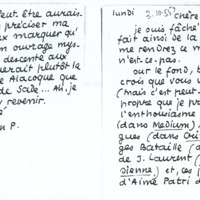 Peut être aurais.
préciser ma
ux marquer qu'
n ouvrage mys-
descente aux
erait plutôt le
e Alacoque que
de SADE... Ah, je
y revenir.
é
n P.
lundi 3.10.55 Chère
je suis fâché
fait ainsi de la
me rendrez ce m
n'est-ce pas.
Sur le fond, t
crois que vous
(mais c'est peut-
propre que je pr
l'enthousiasme
(dans Medium).
gues (dans Oui
ges Bataille (a
de J. Laurent (
sienne) et, ces j
d'Aimé Patri d